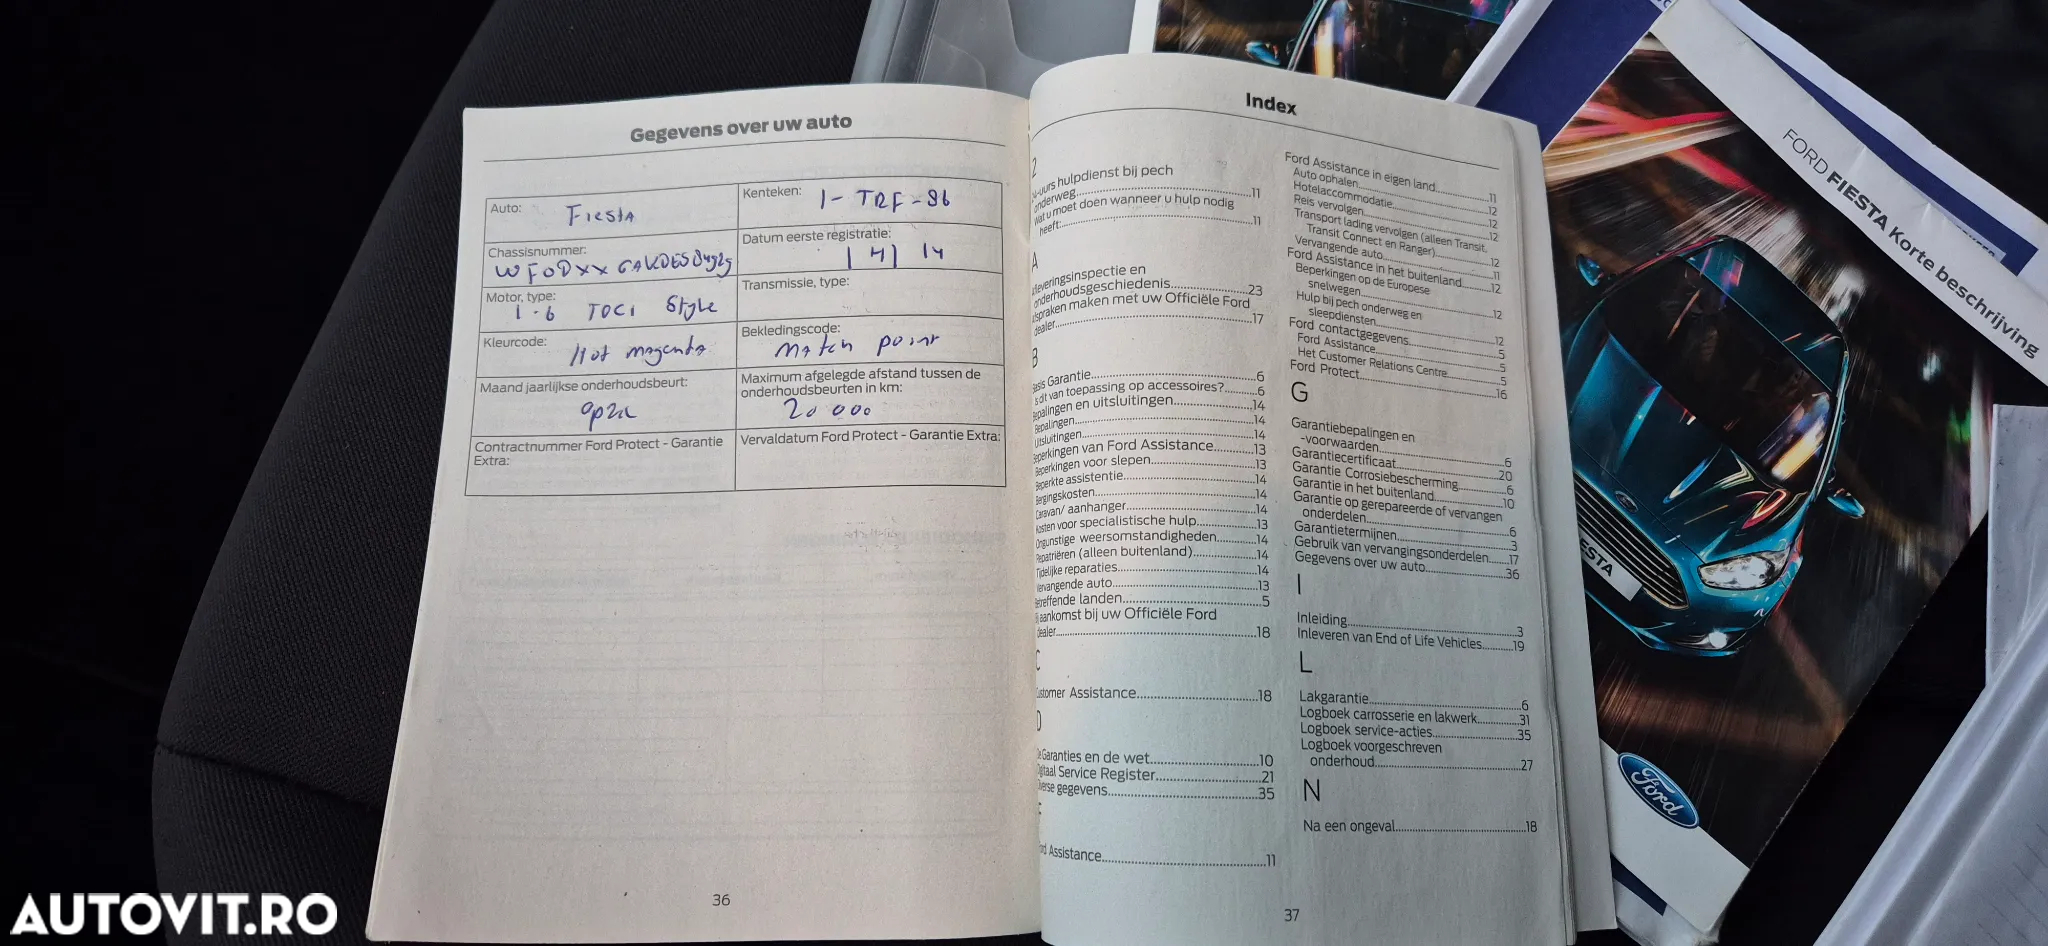 Gegevens over uw auto
Auto: Fiesta
Kenteken: 1-TRF-86
Chassisnummer:
Datum eerste registratie:
14
Motor, type:
1.6 TDCi Style
Transmissie, type:
Kleurcode: Hot magenta
Bekledingscode:
Match point
Maand jaarlijkse onderhoudsbeurt:
Maximum afgelegde afstand tussen de
onderhoudsbeurten in km:
20 000
Contractnummer Ford Protect - Garantie
Extra:
Vervaldatum Ford Protect - Garantie Extra:
36
Index
2
uurs hulpdienst bij pech
onderweg 11
wat u moet doen wanneer u hulp nodig
heeft: 11
A
Afleveringsinspectie en
onderhoudsgeschiedenis 23
Afspraken maken met uw Officiële Ford
dealer 17
B
Basis Garantie 6
Is dit van toepassing op accessoires? 6
Bepalingen en uitsluitingen 14
Bepalingen 14
Uitsluitingen 14
Beperkingen van Ford Assistance 13
Beperkingen voor slepen 13
Beperkte assistentie 14
Bergingskosten 14
Caravan/ aanhanger 14
Kosten voor specialistische hulp 13
Ongunstige weersomstandigheden 14
Repatriëren (alleen buitenland) 14
Tijdelijke reparaties 14
Vervangende auto 13
Betreffende landen 5
Bij aankomst bij uw Officiële Ford
dealer 18
C
Customer Assistance 18
D
De Garanties en de wet 10
Digitaal Service Register 21
Diverse gegevens 35
F
Ford Assistance 11
Ford Assistance in eigen land 11
Auto ophalen 12
Hotelaccommodatie 12
Reis vervolgen 12
Transport lading vervolgen (alleen Transit,
Transit Connect en Ranger) 12
Vervangende auto 11
Ford Assistance in het buitenland 12
Beperkingen op de Europese
snelwegen 12
Hulp bij pech onderweg en
sleepdiensten 12
Ford contactgegevens 5
Ford Assistance 5
Het Customer Relations Centre 5
Ford Protect 16
G
Garantiebepalingen en
-voorwaarden 6
Garantiecertificaat 20
Garantie Corrosiebescherming 6
Garantie in het buitenland 10
Garantie op gerepareerde of vervangen
onderdelen 6
Garantietermijnen 3
Gebruik van vervangingsonderdelen 17
Gegevens over uw auto 36
I
Inleiding 3
Inleveren van End of Life Vehicles 19
L
Lakgarantie 6
Logboek carrosserie en lakwerk 31
Logboek service-acties 35
Logboek voorgeschreven
onderhoud 27
N
Na een ongeval 18
37
FORD FIESTA Korte beschrijving
FIESTA
Ford
AUTOVIT.RO